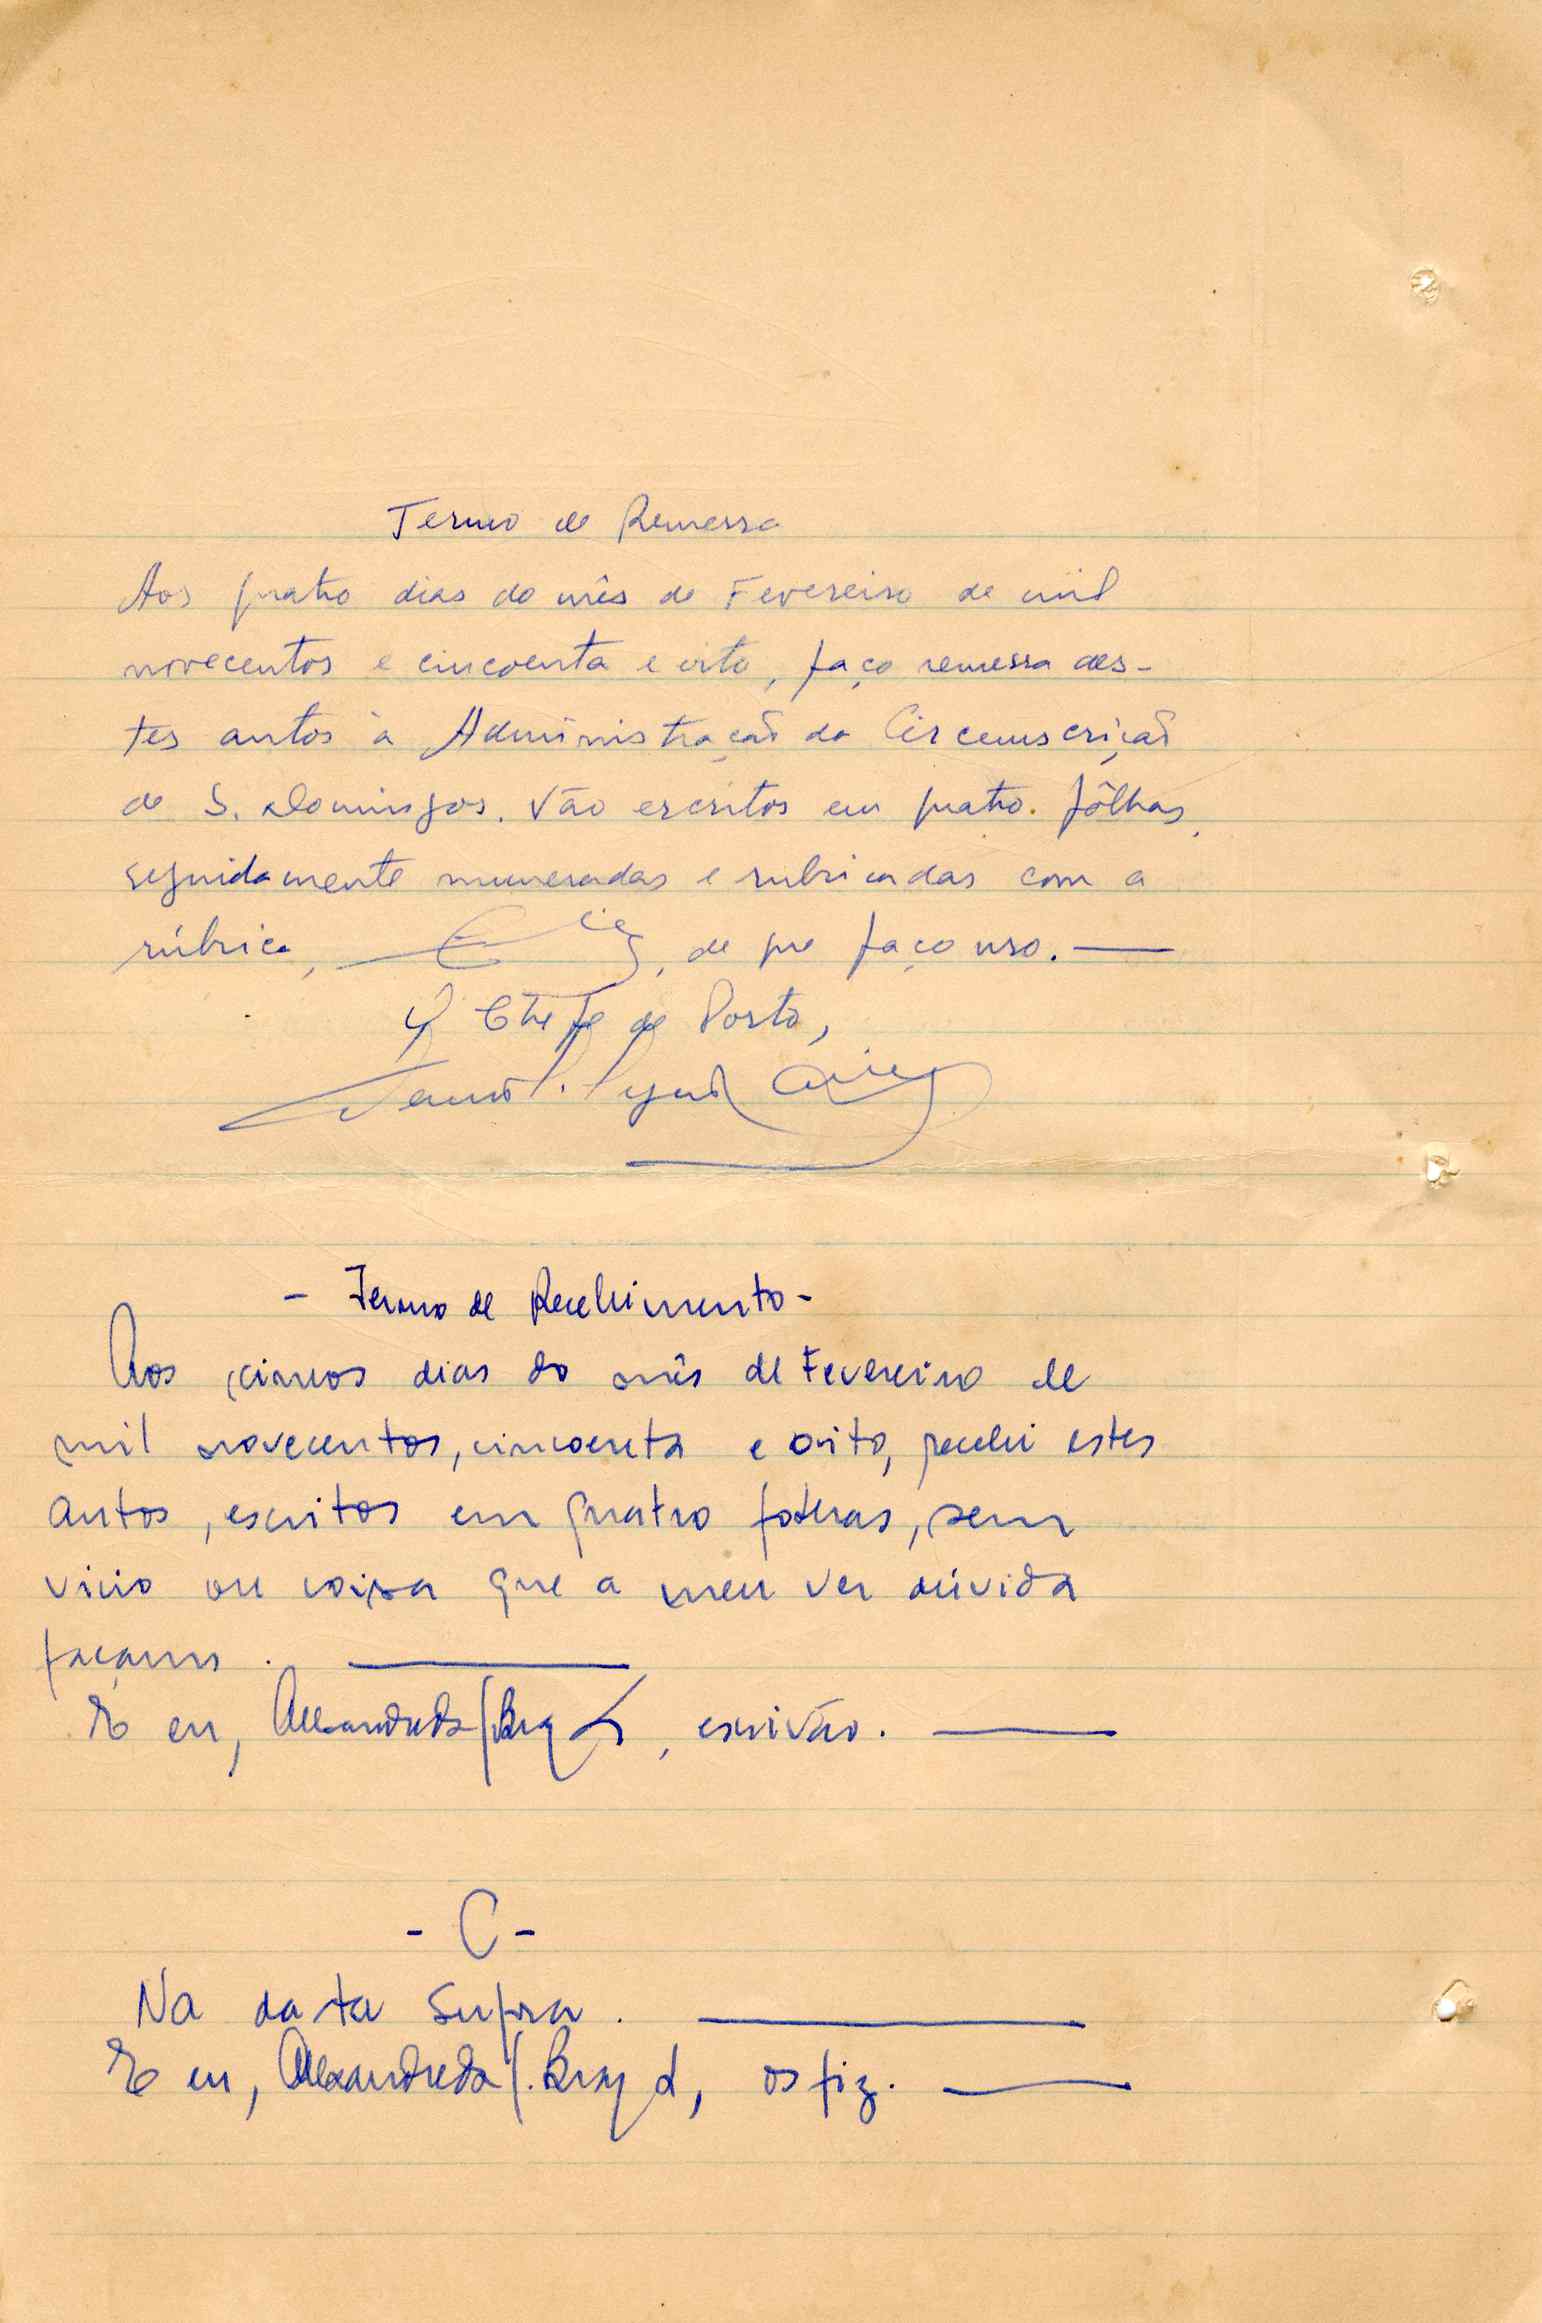 Termo de Remessa
Aos quatro dias do mês de Fevereiro de mil
novecentos e cincoenta e oito, faço remessa des-
tes autos à Administração da Circunscrição
de S. Domingos. Vão escritos em quatro fôlhas,
seguidamente numeradas e rubricadas com a
rúbrica, de que faço uso.
O Chefe de Posto,
- Termo de Recebimento -
Aos cincos dias do mês de Fevereiro de
mil novecentos, cincoenta e oito, recebi estes
autos, escritos em quatro folhas, sem
vicio ou coisa que a meu ver dúvida
façam.
E eu, escrivão.
- C -
Na data supra.
E eu, os fiz.